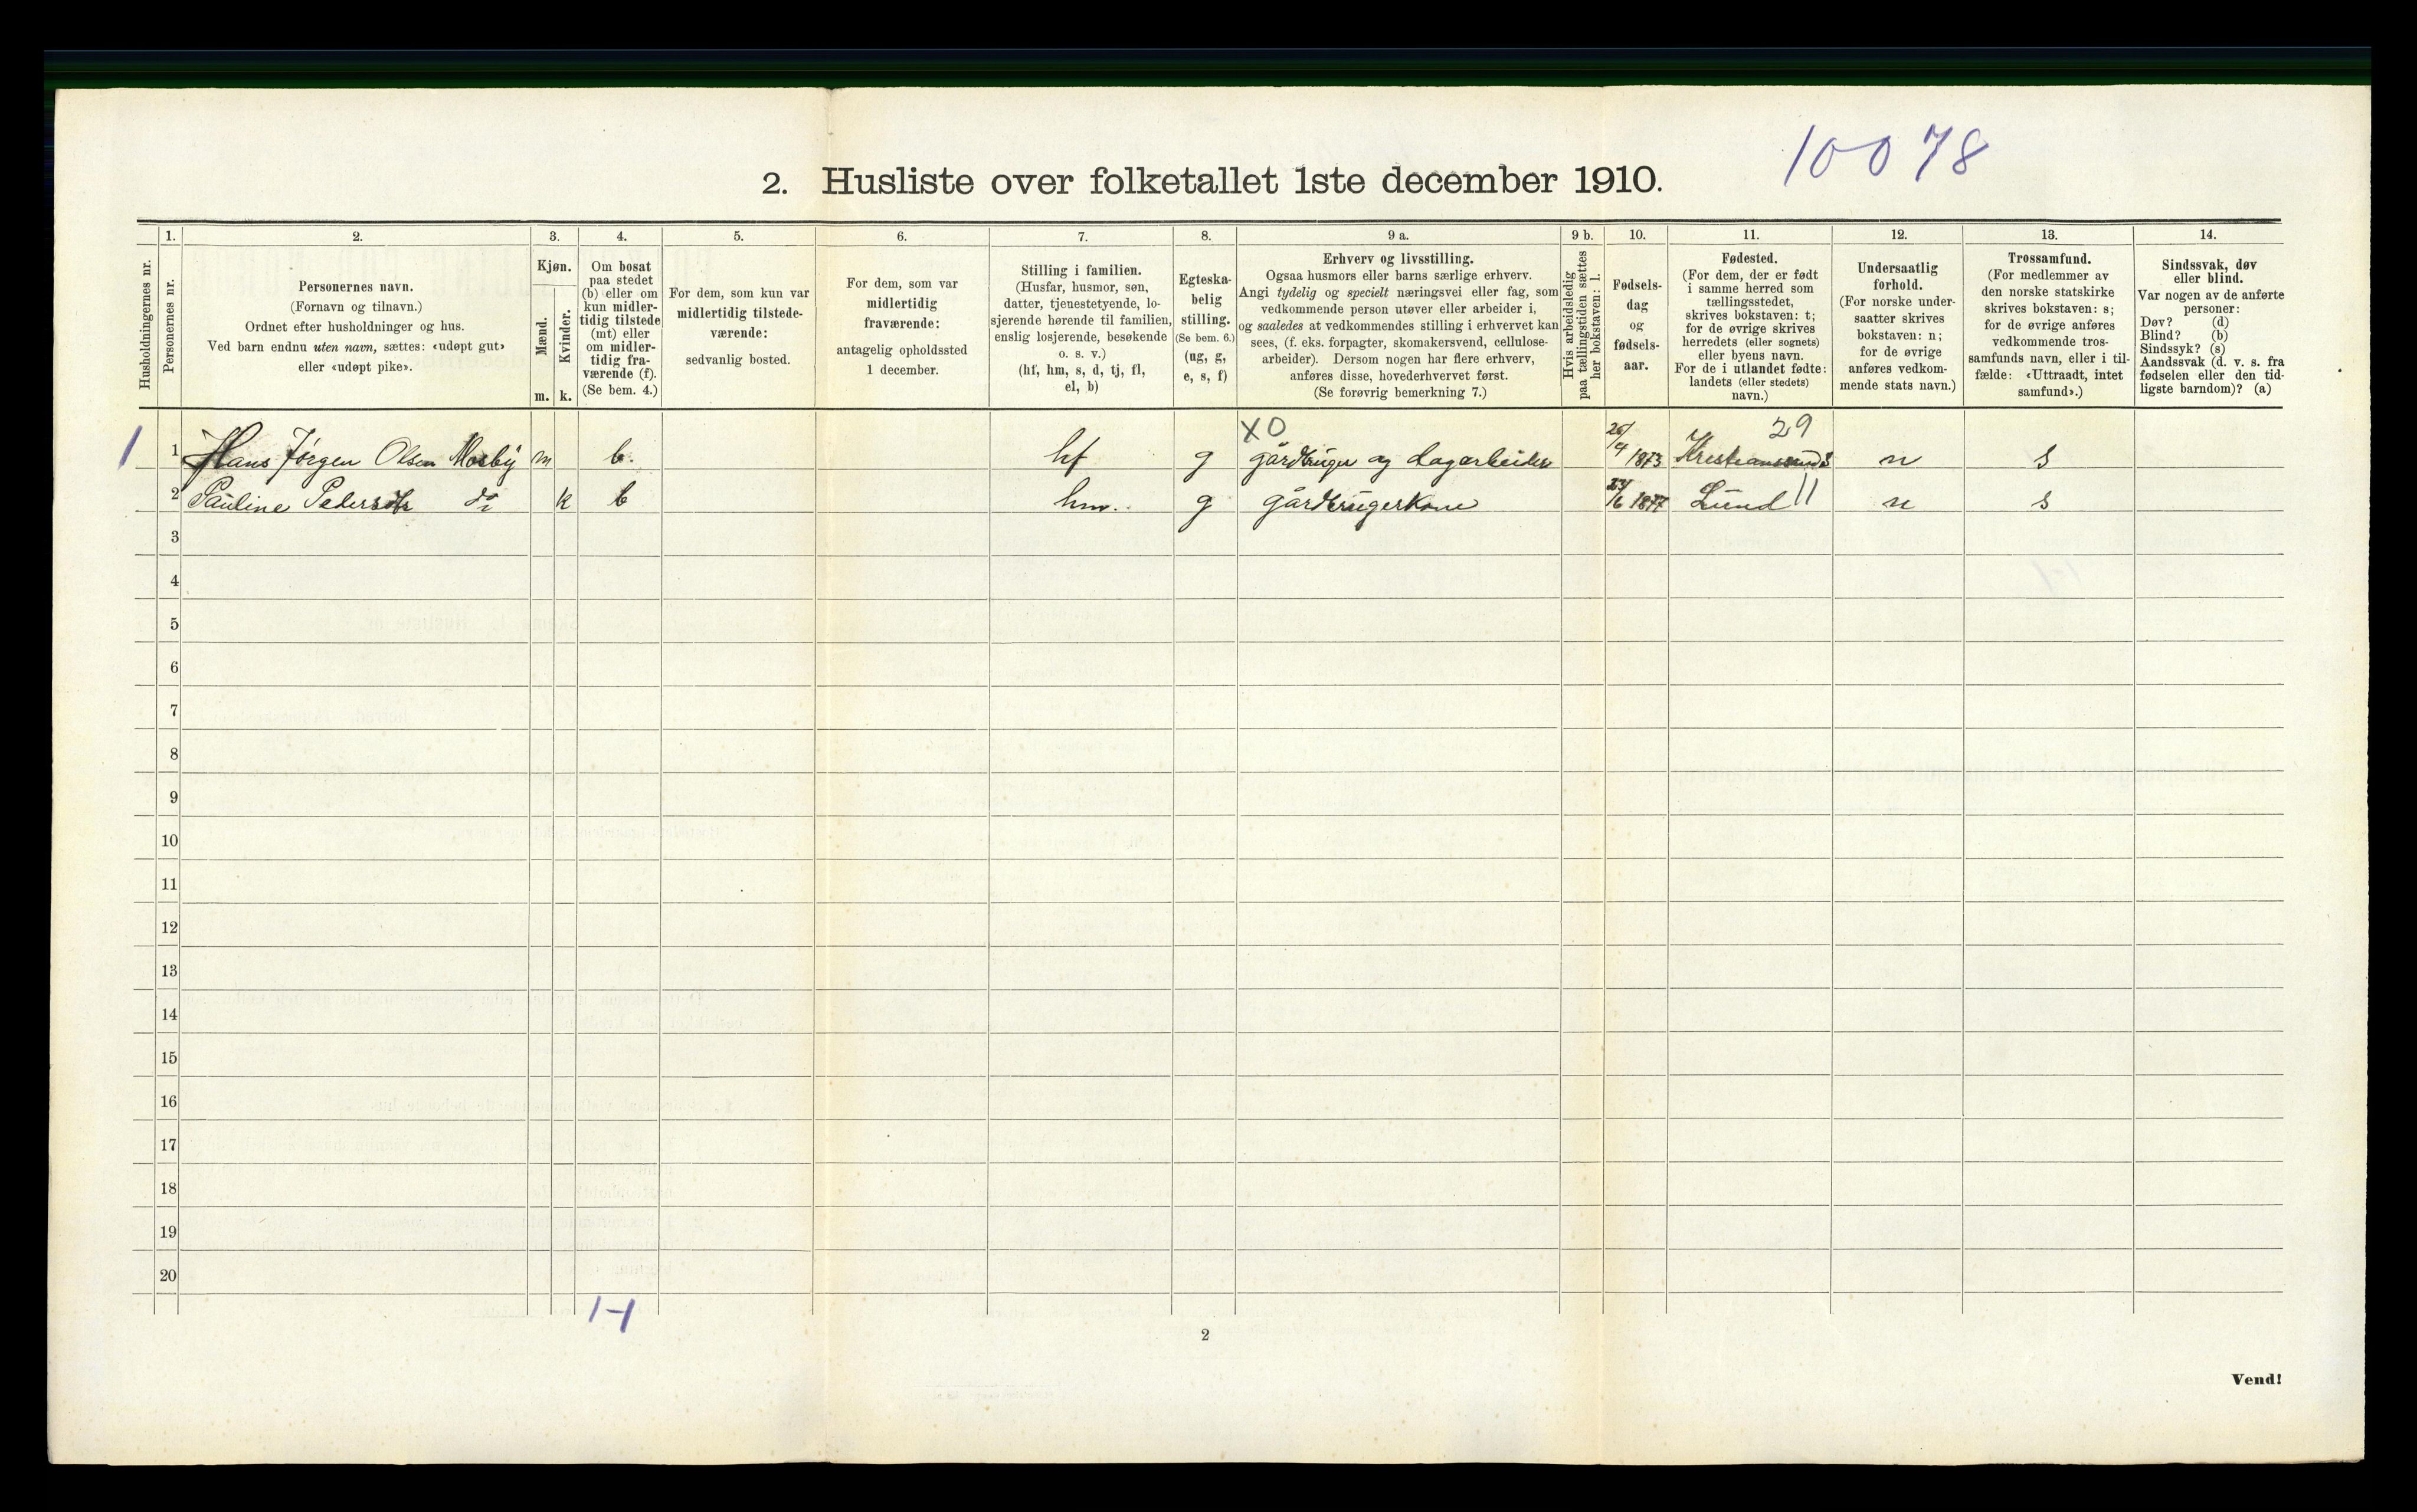 10078
2. Husliste over folketallet 1ste december 1910.
Husholdningernes nr.
1.
Personernes nr.
2.
Personernes navn.
(Fornavn og tilnavn.)
Ordnet efter husholdninger og hus.
Ved barn endnu uten navn, sættes: «udøpt gut»
eller «udøpt pike».
3.
Kjøn.
Mænd.
Kvinder.
m. k.
4.
Om bosat
paa stedet
(b) eller om
kun midler-
tidig tilstede
(mt) eller
om midler-
tidig fra-
værende (f).
(Se bem. 4.)
5.
For dem, som kun var
midlertidig tilstede-
værende:
sedvanlig bosted.
6.
For dem, som var
midlertidig
fraværende:
antagelig opholdssted
1 december.
7.
Stilling i familien.
(Husfar, husmor, søn,
datter, tjenestetyende, lo-
sjerende hørende til familien,
enslig losjerende, besøkende
o. s. v.)
(hf, hm, s, d, tj, fl,
el, b)
8.
Egteska-
belig
stilling.
(Se bem. 6.)
(ug, g,
e, s, f)
9 a.
Erhverv og livsstilling.
Ogsaa husmors eller barns særlige erhverv.
Angi tydelig og specielt næringsvei eller fag, som
vedkommende person utøver eller arbeider i,
og saaledes at vedkommendes stilling i erhvervet kan
sees, (f. eks. forpagter, skomakersvend, cellulose-
arbeider). Dersom nogen har flere erhverv,
anføres disse, hovederhvervet først.
(Se forøvrig bemerkning 7.)
9 b.
Hvis arbeidsledig
paa tællingstiden sættes
her bokstaven: l.
10.
Fødsels-
dag
og
fødsels-
aar.
11.
Fødested.
(For dem, der er født
i samme herred som
tællingsstedet,
skrives bokstaven: t;
for de øvrige skrives
herredets (eller sognets)
eller byens navn.
For de i utlandet fødte:
landets (eller stedets)
navn.)
12.
Undersaatlig
forhold.
(For norske under-
saatter skrives
bokstaven: n;
for de øvrige
anføres vedkom-
mende stats navn.)
13.
Trossamfund.
(For medlemmer av
den norske statskirke
skrives bokstaven: s;
for de øvrige anføres
vedkommende tros-
samfunds navn, eller i til-
fælde: «Uttraadt, intet
samfund».)
14.
Sindssvak, døv
eller blind.
Var nogen av de anførte
personer:
Døv? (d)
Blind? (b)
Sindssyk? (s)
Aandssvak (d. v. s. fra
fødselen eller den tid-
ligste barndom)? (a)
XO 29
1 1 Hans Jørgen Olsen Mosby m b. hf g gårdbruger og dagarbeider 26/4 1873 Kristianssund n s
2 Pauline Pedersdtr do k b hm. g gårdbrugerkone /6 1877 Lund 11 n s
3
4
5
6
7
8
9
10
11
12
13
14
15
16
17
18
19
20
1-1
2
Vend!